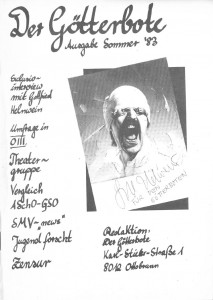 Der Götterbote
Ausgabe Sommer '83
Exclusiv-
interview
mit Gottfried
Helnwein
Umfrage in
OIII.
Theater-
gruppe
Vergleich
ASchO-GSO
SMV-"news"
Jugend forscht
Zensur
Redaktion:
Der Götterbote
Karl-Stieler-Straße 1
8012 Ottobrunn